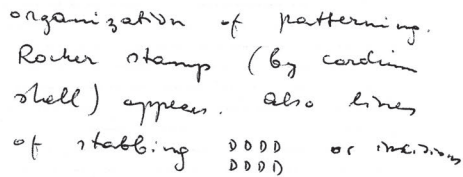 organization of patterning.
Rocker stamp (by cardium
shell) appears. Also lines
of stabbing DDDD or incisions
DDDD